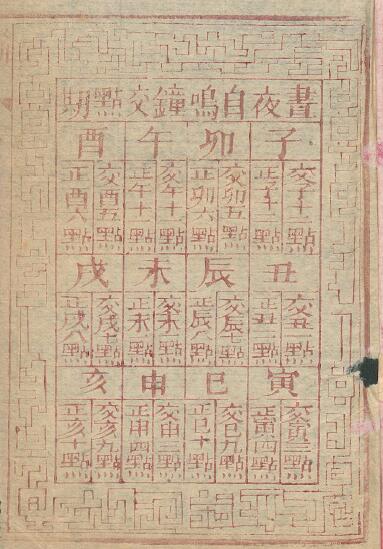 晝夜自鳴鐘交點期
子
卯
午
酉
交子十一點
正子十二點
交卯五點
正卯六點
交午十一點
正午十二點
交酉五點
正酉六點
丑
辰
未
戌
交丑一點
正丑二點
交辰七點
正辰八點
交未一點
正未二點
交戌七點
正戌八點
寅
巳
申
亥
交寅三點
正寅四點
交巳九點
正巳十點
交申三點
正申四點
交亥九點
正亥十點